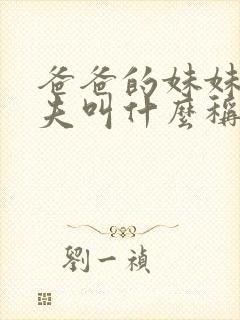 爸爸的妹妹
夫叫什麼稱
劉一禎